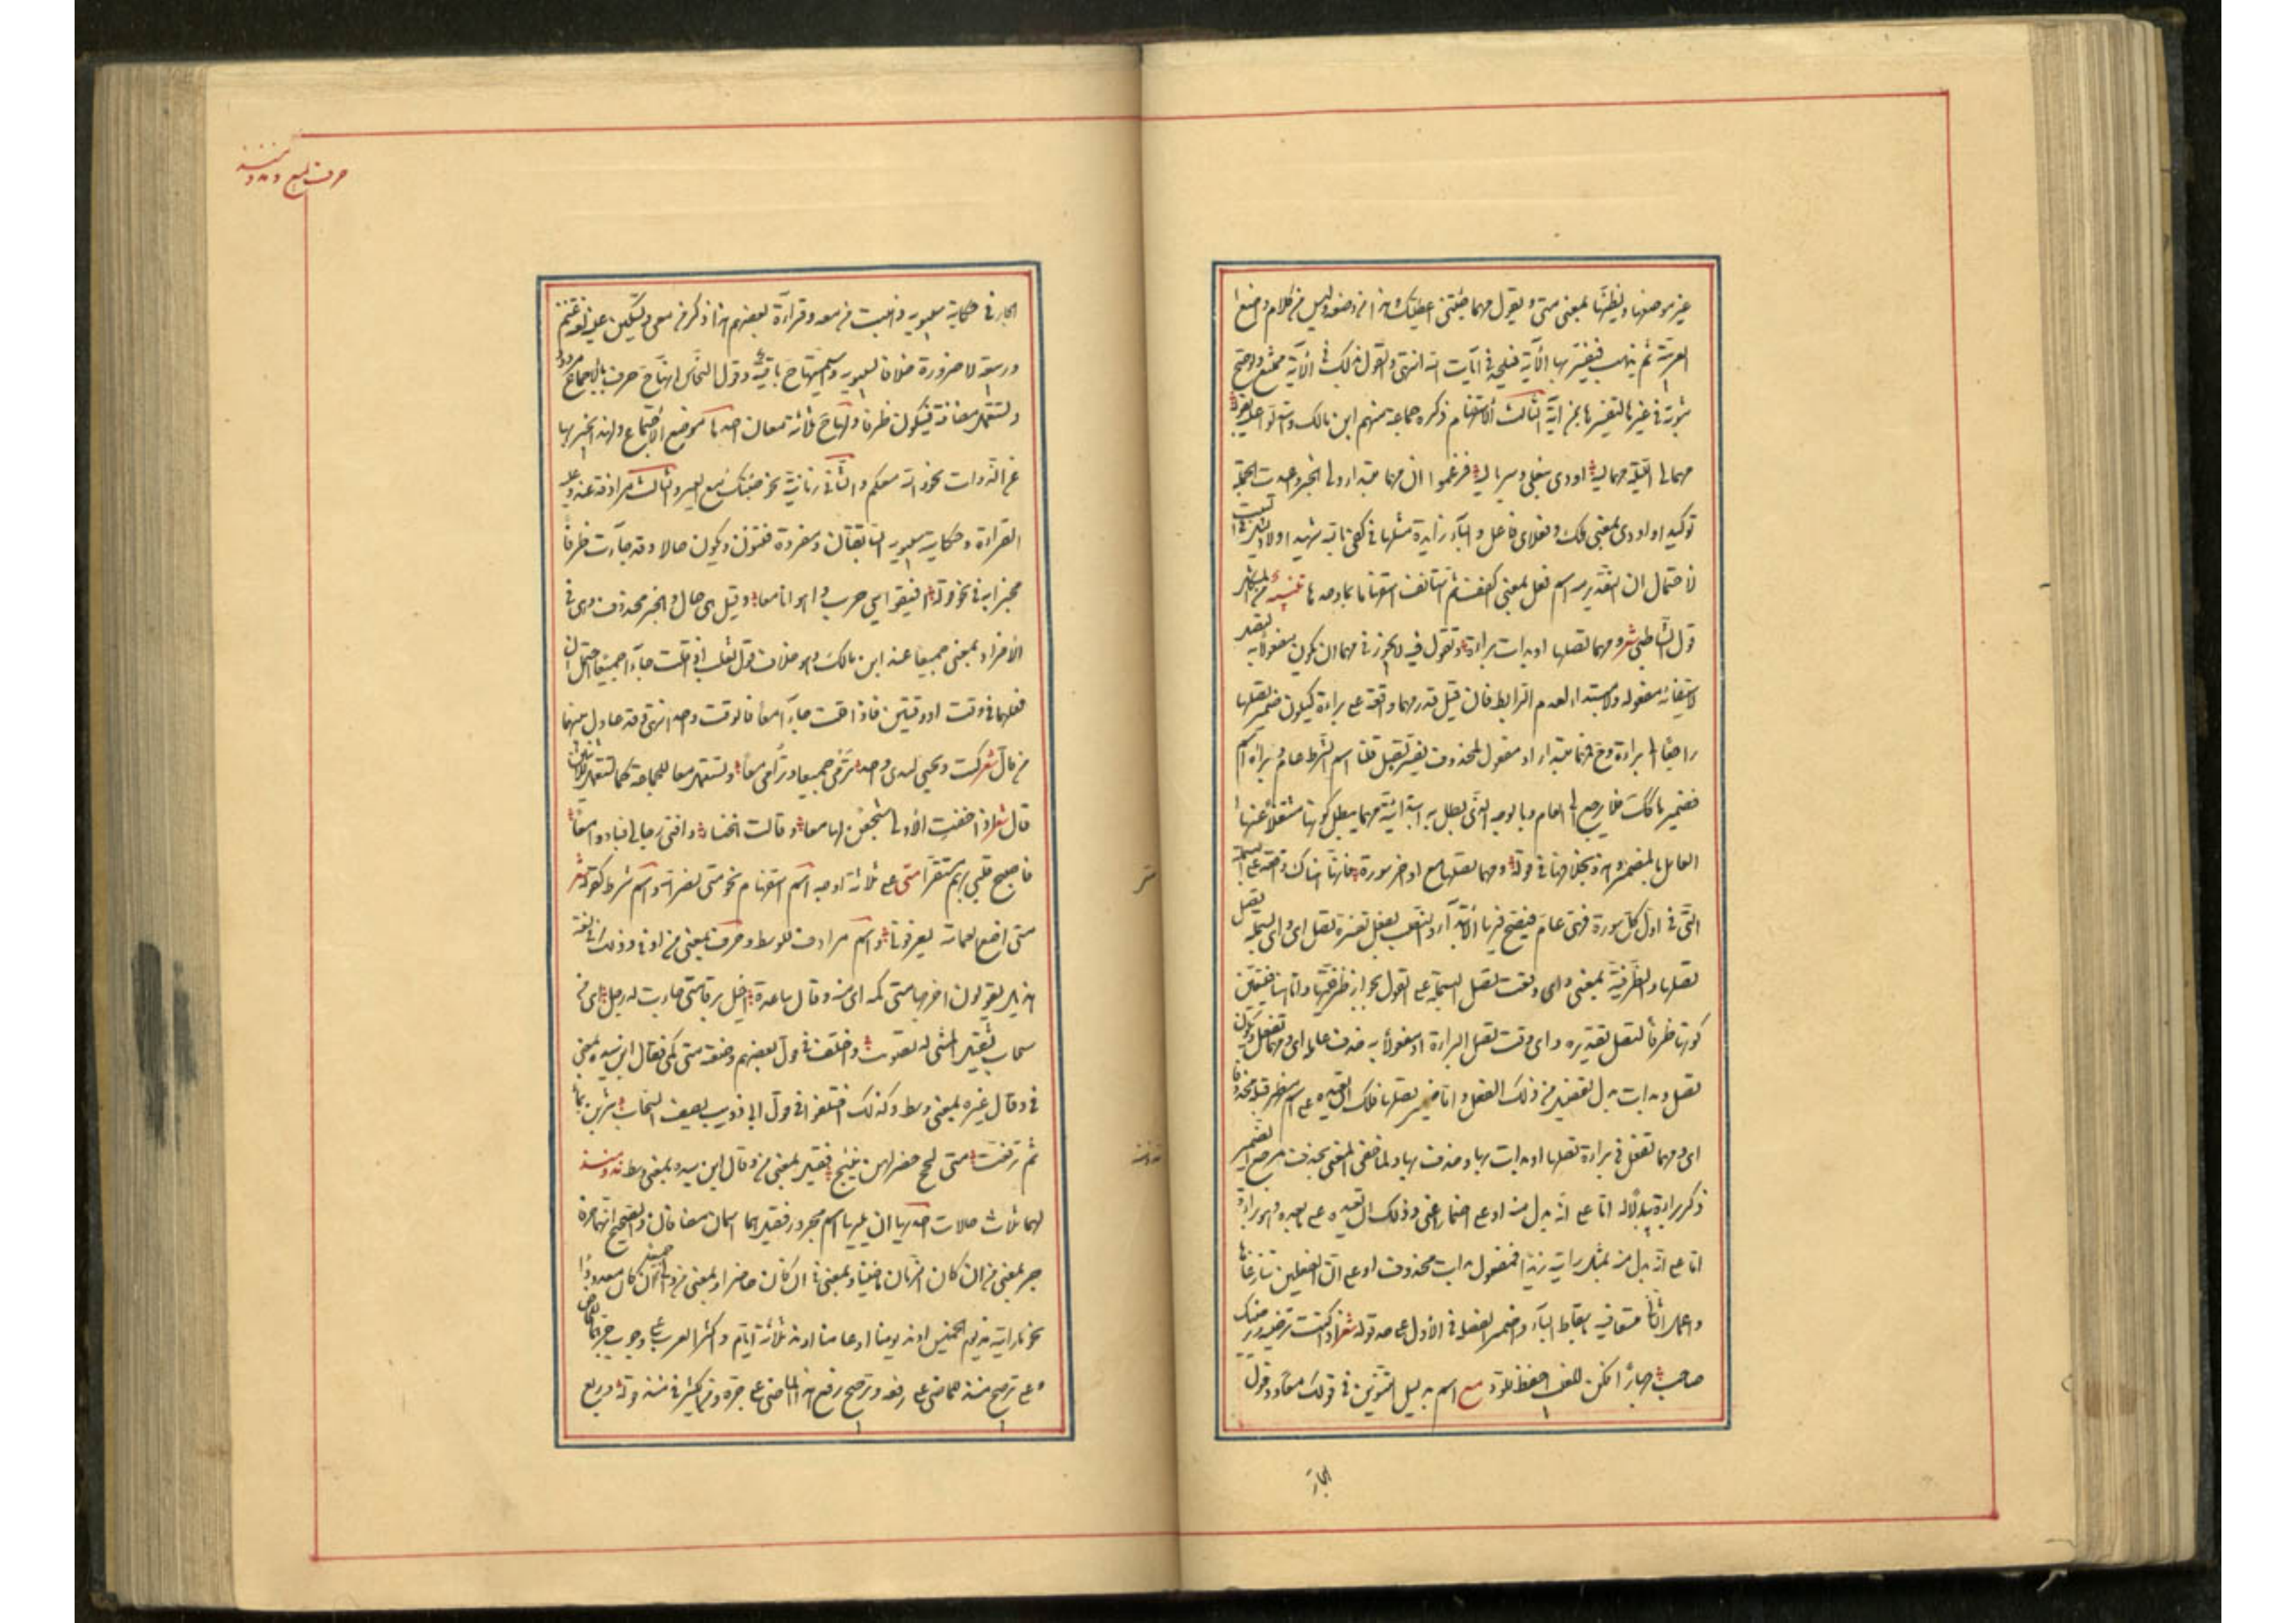 غير موضعها ويظنها بمعنى متى ويقول مهما جئتنى اعطيتك وهذا من وضعه وليس من كلام واضع
العربية ثم يذهب فيفسر بها الآية فيلحد فى آيات الله انتهى والقول بذلك فى الآية ممتنع ولو صح
ثبوته فى غيرها لتفسيرها بمن آية الثالث الاستفهام ذكره جماعة منهم ابن مالك واستدلوا عليه بقوله
مهما لى الليلة مهما ليه اودى بنعلى وسرباليه فزعموا ان مهما مبتدا ولى الخبر واعيدت الجملة
توكيدا واودى بمعنى هلك ونعلاى فاعل والباء زايدة مثلها فى كفى بالله شهيدا ولا دليل فى البيت
لاحتمال ان التقدير مه اسم فعل بمعنى اكفف ثم استأنف استفهاما بما وحدها تنبيه من المشكل
قول الشاطبى شعر ومهما تصلها او بدات براءة ونقول فيه لا يجوز فى مهما ان يكون مفعولا به لتصل
لاستيفائه مفعوله ولا مبتدا لعدم الرابط فان قيل قدر مهما واقعة على براءة فيكون ضمير تصلها
راجعا الى براءة وح فمهما مبتدا او مفعول لمحذوف يفسره تصل قلنا اسم الشرط عام وبراءة اسم
فضمير ها كذلك فلا يرجع الى العام وبالوجه الذى بطل به ابتدائية مهما يبطل كونها مشتغلا عنها
العامل بالضمير وهذه بخلافها فى قوله ومهما تصلها مع اواخر سورة فانها هناك واقعة على البسملة
التى فى اول كل سورة فهى عام فيصح فيها الابتداء والنصب بفعل تفسره تصل اى واى بسملة تصل
تصلها والظرفية بمعنى واى وقت تصل البسملة على القول بجواز ظرفيتها واما هنا فيتعين
كونها ظرفا لتصل بتقديره واى وقت تصل براءة او مفعولا به حذف عامله اى ومهما تفعل ويكون
تصل وبدات بدل تفصيل من ذلك الفعل واما ضمير تصلها فلك ان تعيده على اسم مظهر قبله محذوفا
اى ومهما تفعل فى براءة تصلها او بدات بها وحذف بها ولما خفى المعنى بحذف مرجع الضمير
ذكر براءة بيانا له اما على انه بدل منه او على اضمار اعنى وذلك ان تعيده على ما بعده وهو براءة
اما على انه بدل منه مثل رايته زيدا فمفعول بدات محذوف او على ان الفعلين تنازعاها
واعمل الثانى متسعا فيه باسقاط الباء واضمر الفضلة فى الاول على حد قوله شعر اذا كنت ترضيه ويرضيك
صاحب جهارا فكن للغيب احفظ للود مع اسم بدليل التنوين فى قولك معا ودخول
الجار
حرف الميع ومذ ومنذ
الجار فى حكاية سيبويه ذهبت من معه وقراءة بعضهم هذا ذكر من معى وتسكين عينه لغة غنم
وربيعة لا ضرورة خلافا لسيبويه واسميتها ح باقية وقول النحاس انها ح حرف بالاجماع مردود
وتستعمل مضافة فيكون ظرفا ولها ح ثلاثة معان احدها موضع الاجتماع ولهذا يخبر بها
عن الذوات نحو والله معكم والثانى زمانه نحو جئتك مع العصر والثالث مرادفة عند وعليه
القراءة وحكاية سيبويه السابقتان ومفردة فتنون ويكون حالا وقد جاءت ظرفا
مخبرا به فى نحو قوله افيقوا بنى حرب واهواؤنا معا وقيل هى حال والخبر محذوف وهى فى
الافراد بمعنى جميعا عند ابن مالك وهو خلاف قول ثعلب اذا قلت جاءا جميعا احتمل ان
فعلهما فى وقت او وقتين فاذا قلت جاءا معا فالوقت واحد انتهى وقد عادل بينهما
من قال شعر كنت ويحيى كيدى واحد نرمى جميعا ونرامى معا وتستعمل معا للجماعة كما تستعمل للاثنين
قال شعر اذا حنت الاولى سجعن لها معا وقالت الخنساء وافنى رجالى فبادوا معا
فاصبح قلبى بهم مستفزا متى على ثلاثة اوجه اسم استفهام نحو متى نصر الله واسم شرط كقوله شعر
متى اضع العمامة تعرفونى واسم مرادف للوسط وحرف بمعنى من او فى وذلك فى لغة
هذيل يقولون اخرجها متى كمه اى منه وقال ساعدة اخيل برقا متى حاب له زجل اى من
سحاب ثقيل المشى له تصويت واختلف فى قول بعضهم وضعته متى كمى فقال ابن سيده بمعنى
فى وقال غيره بمعنى وسط وكذلك اختلفوا فى قول ابى ذويب يصف السحاب شربن بماء
ثم ترفعت متى لجج خضر لهن نئيج فقيل بمعنى من وقال ابن سيده بمعنى وسط مذ ومنذ
لهما ثلاث حالات احديها ان يليهما اسم مجرور فقيل هما اسمان مضافان والصحيح انهما حرفا
جر بمعنى من ان كان الزمان ماضيا وبمعنى فى ان كان حاضرا وبمعنى من والى جميعا ان كان معدودا
نحو ما رايته مذ يوم الخميس او مذ يومنا او عامنا او مذ ثلاثة ايام واكثر العرب على وجوب جرهما للحاضر
وعلى ترجيح منذ للماضى على رفعه وترجيح رفع مذ للماضى على جره ومن الكثير فى منذ قوله وربع